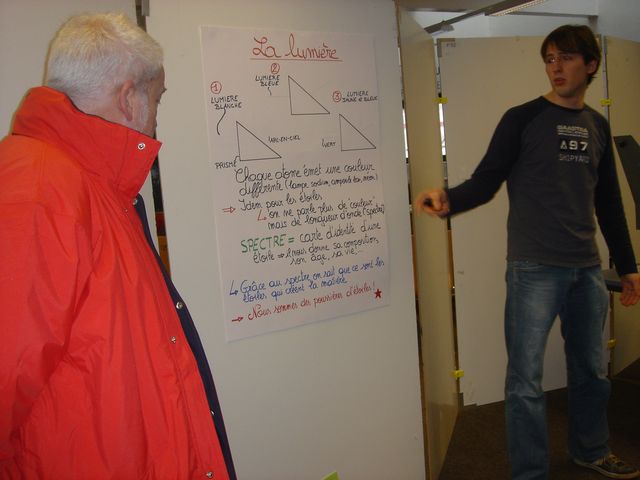 La lumière
①
LUMIERE
BLANCHE
PRISME
②
LUMIERE
BLEUE
VAL-EN-CIEL
③ LUMIERE
JAUNE & BLEUE
VERT
Chaque atome émet une couleur
différente (lampe sodium, ampoule, néon)
⇒ Idem pour les étoiles
↳ on ne parle plus de couleur
mais de longueur d'onde (spectre)
SPECTRE = carte d'identité d'une
étoile ⇒ il nous donne sa composition,
son âge, sa vie...
↳ Grâce au spectre on sait que ce sont les
étoiles qui créent la matière
⇒ Nous sommes des poussières d'étoiles!
A97
SHIPYARD